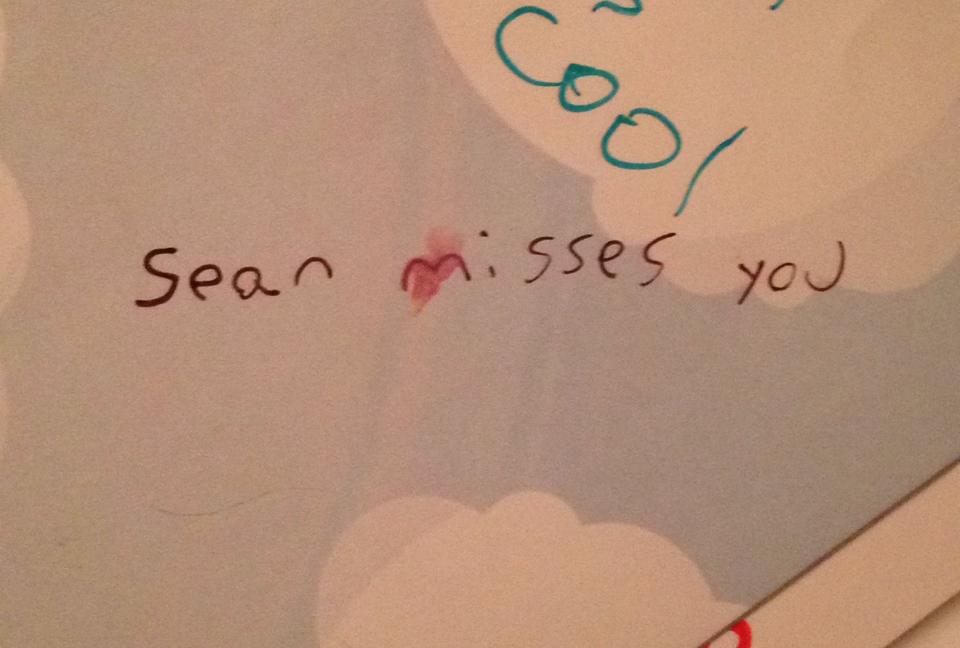 Cool
Sean misses you